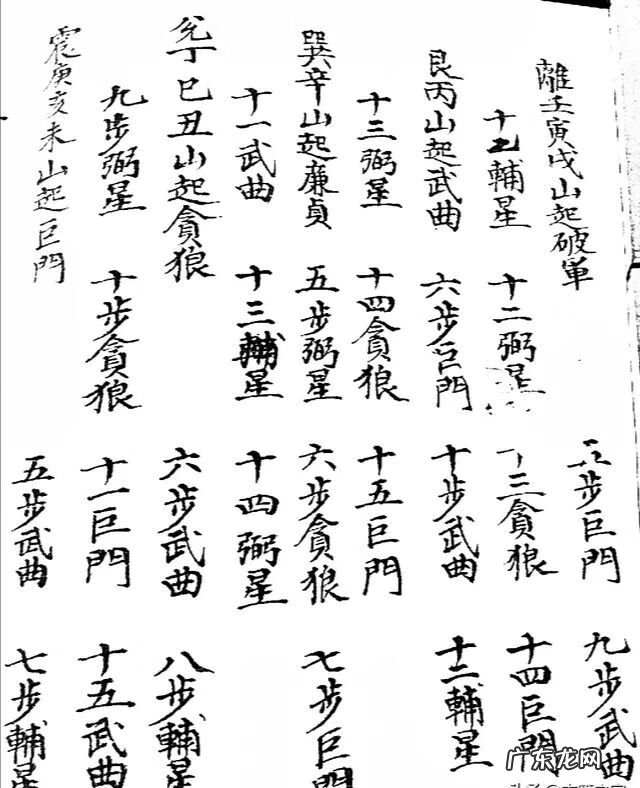 離壬寅戌山起破軍 步巨門 九步武曲
輔星 十二弼星 三貪狼 十四巨門
艮丙山起武曲 六步巨門 十步武曲 十二輔星
十三弼星 十四貪狼 十五巨門
巽辛山起廉貞 五步弼星 六步貪狼 七步巨門
十一武曲 十三輔星 十四弼星
兌丁巳丑山起貪狼 六步武曲 八步輔星
九步弼星 十步貪狼 十一巨門 十五武曲
震庚亥未山起巨門 五步武曲 七步輔星
广东龙网